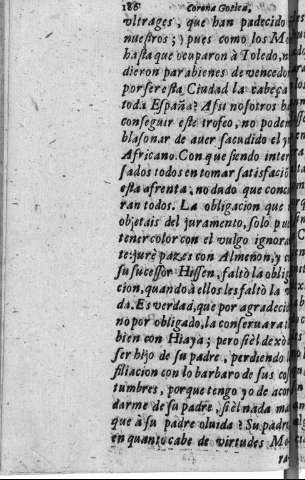 186 Corona Gotica,
vltrages, que han padecido
nuestros;) pues como los
hasta que ocuparon à Toledo,
dieron parabienes de vencedo
por ser esta Ciudad la cabeça
toda España? Assi nosotros
conseguir este trofeo, no
blasonar de auer sacudido el
Africano. Con que siendo
sados todos en tomar satisfació
esta afrenta, no dudo que
ran todos. La obligacion que
objetais del juramento, solo
tener color con el vulgo
te: juré pazes con Almeñon, y
su sucessor Hissen, faltò la
cion, quando à ellos les faltò la
da. Es verdad, que por
no por obligado, la conseruara
bien con Hiaya; pero si èl dexò
ser hijo de su padre, perdiendo
filiacion con lo barbaro de sus
tumbres, porque tengo yo de
darme de su padre, si èl nada
que à su padre oluida? Su padre
en quanto cabe de virtudes